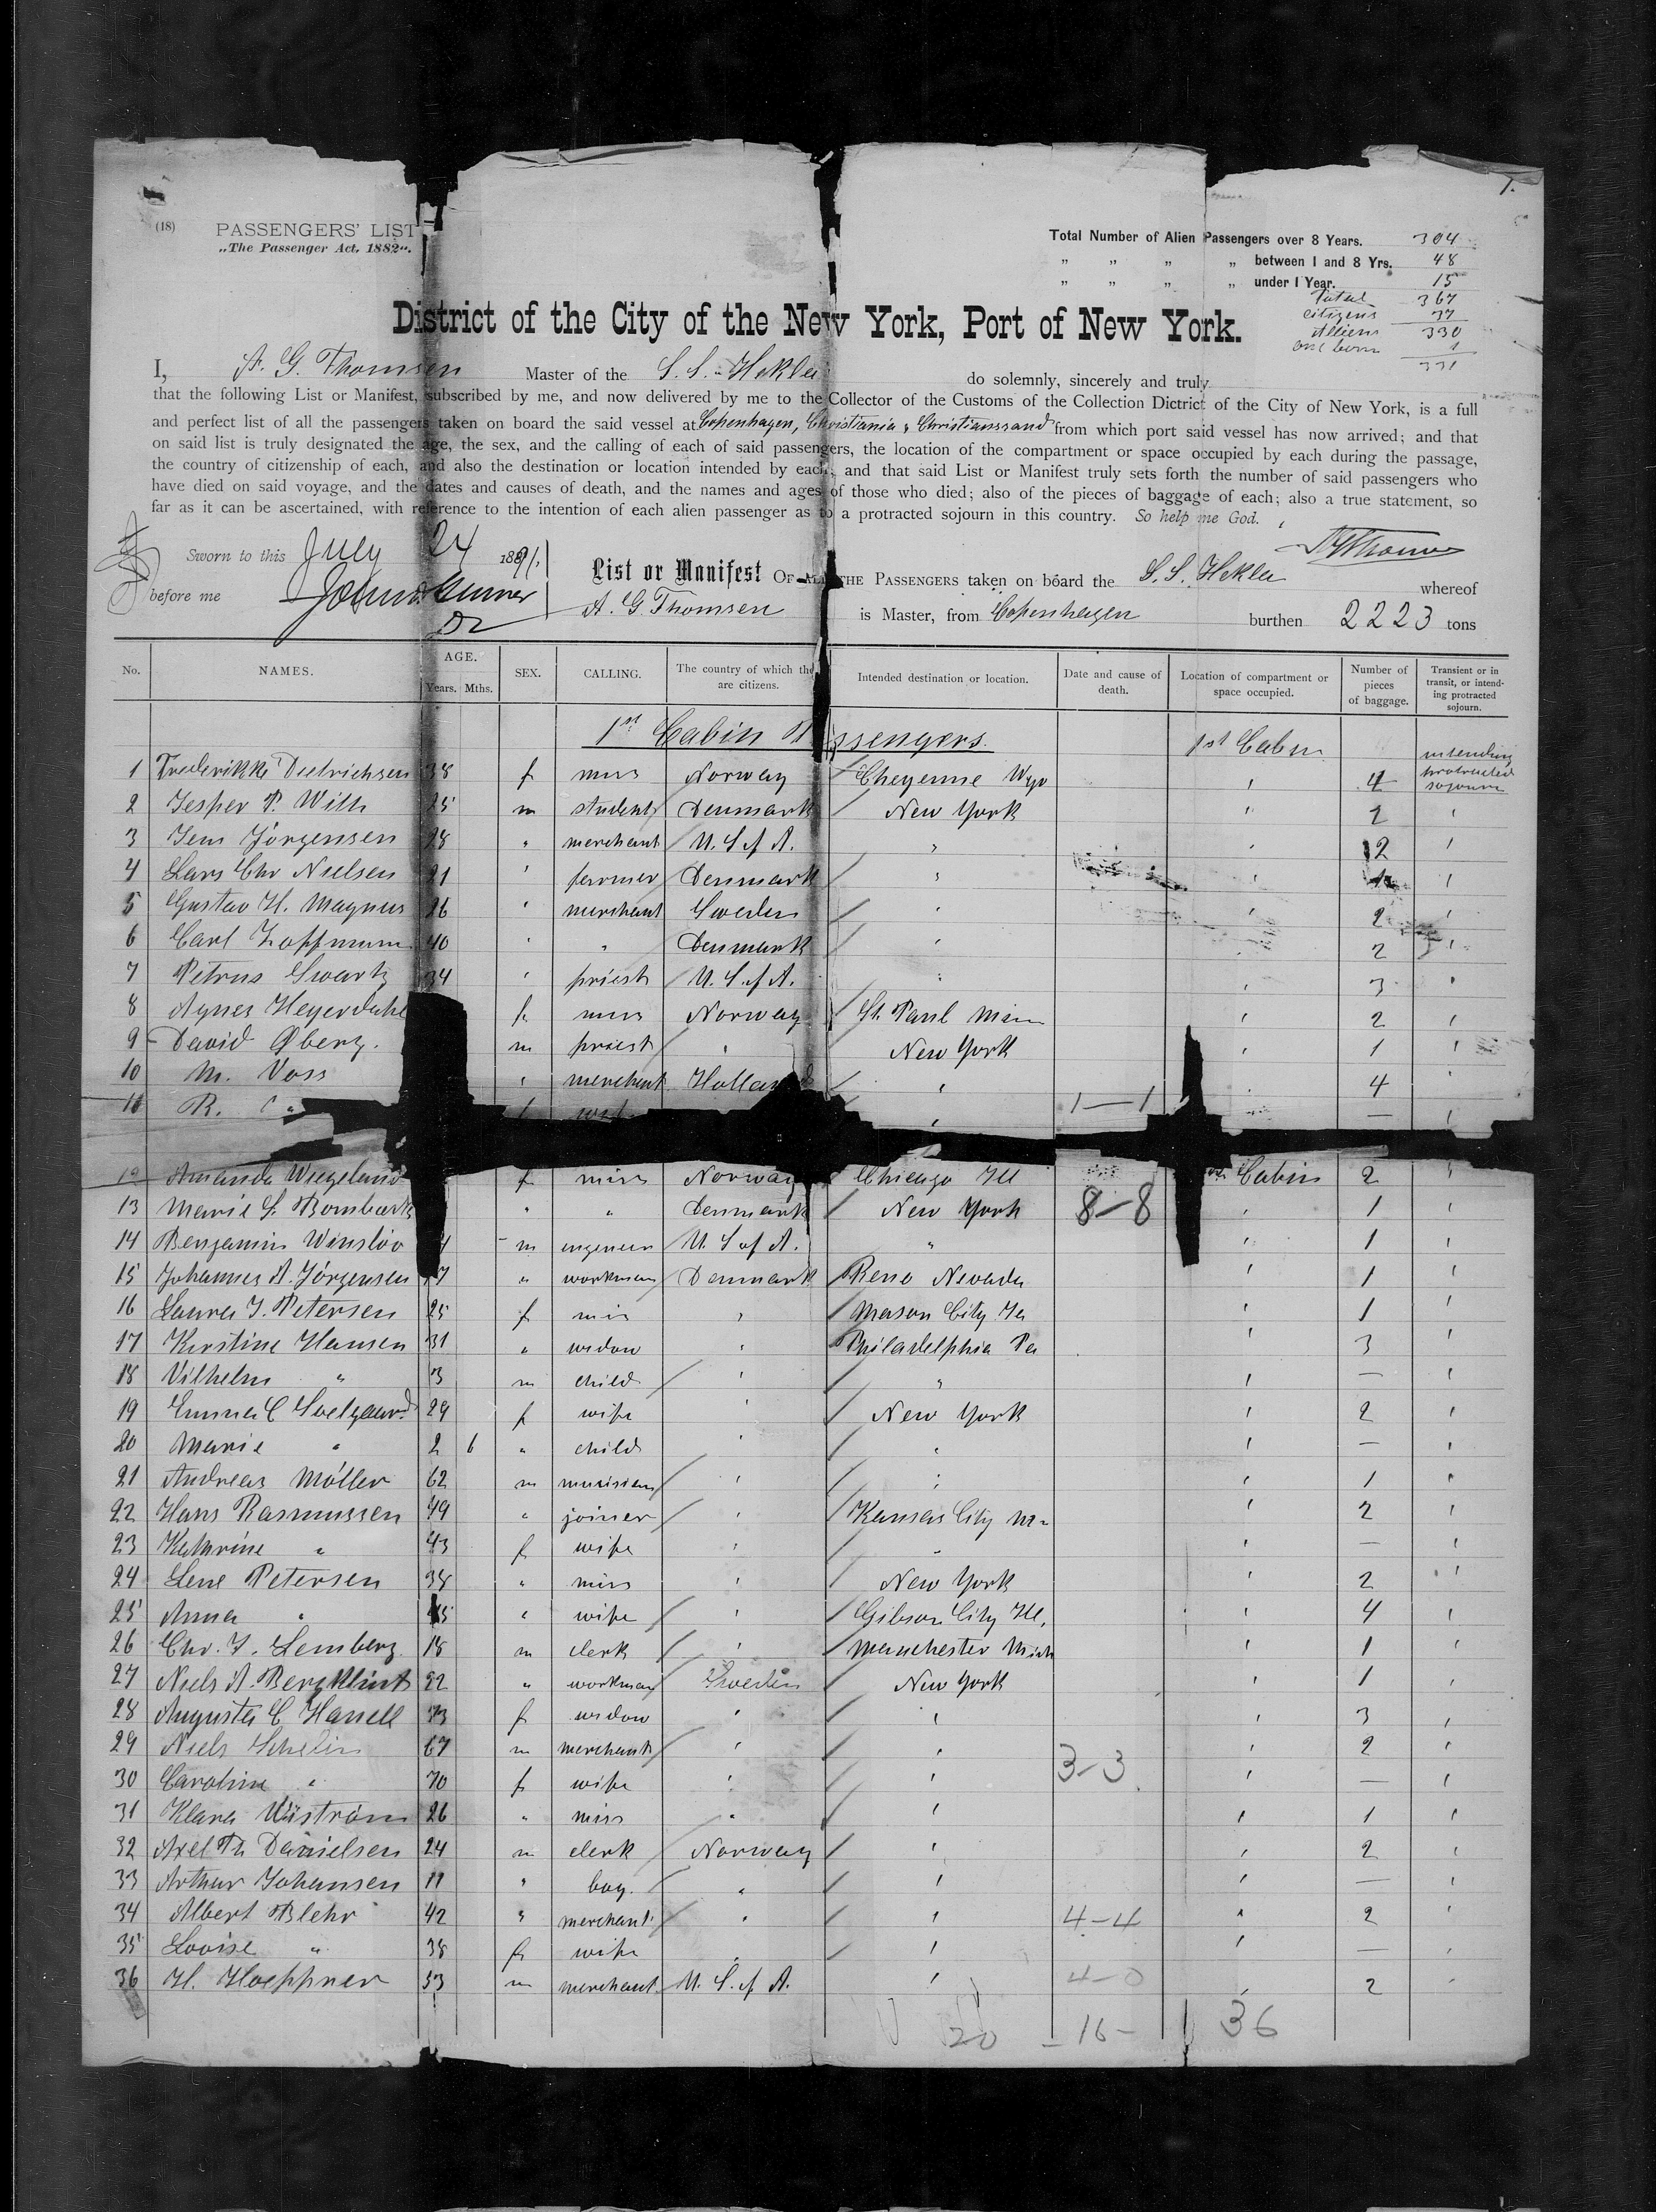 1.
(18) PASSENGERS' LIST
„The Passenger Act, 1882".
Total Number of Alien Passengers over 8 Years. 304
„ „ „ „ between 1 and 8 Yrs. 48
„ „ „ „ under 1 Year. 15
Total 367
citizens 37
Aliens 330
one born 1
331
District of the City of the New York, Port of New York.
I, A. G. Thomsen Master of the S. S. Hekla do solemnly, sincerely and truly
that the following List or Manifest, subscribed by me, and now delivered by me to the Collector of the Customs of the Collection Dictrict of the City of New York, is a full
and perfect list of all the passengers taken on board the said vessel at Copenhagen, Christiania & Christianssand from which port said vessel has now arrived; and that
on said list is truly designated the age, the sex, and the calling of each of said passengers, the location of the compartment or space occupied by each during the passage,
the country of citizenship of each, and also the destination or location intended by each; and that said List or Manifest truly sets forth the number of said passengers who
have died on said voyage, and the dates and causes of death, and the names and ages of those who died; also of the pieces of baggage of each; also a true statement, so
far as it can be ascertained, with reference to the intention of each alien passenger as to a protracted sojourn in this country. So help me God.
Sworn to this July 24 1891.
before me
List or Manifest OF ALL THE PASSENGERS taken on board the S. S. Hekla whereof
A. G. Thomsen is Master, from Copenhagen burthen 2223 tons
No. NAMES. AGE. Years. Mths. SEX. CALLING. The country of which they are citizens. Intended destination or location. Date and cause of death. Location of compartment or space occupied. Number of pieces of baggage. Transient or in transit, or intending protracted sojourn.
1st Cabin Passengers. 1st Cabin
1 Frederikke Dietrichsen 38 f miss Norway / Cheyenne Wyo ' 4 intending protracted sojourn
2 Jesper P. With 25 m student / Denmark / New York ' 2 '
3 Jens Jörgensen 28 " merchant U. S. of A. " ' 12 '
4 Lars Chr Nielsen 21 ' farmer / Denmark / " ' '
5 Gustav H. Magnus 26 ' merchant Sweden / ' ' 2 '
6 Carl Hoffmann 40 ' " Denmark / ' 2 '
7 Petrus Swartz 34 ' priest / U. S. of A. " ' 3 "
8 Agnes Heyerdahl f. miss Norway / St. Paul Minn ' 2 '
9 David Øberg. m priest / ' New York ' 1 '
10 M. Voss ' merchant Holland / ' 4 '
11 R. " 1-1 — '
12 Amanda Wiegeland f miss Norway / Chicago Ill Cabin 2 '
13 Marie S. Bombark " " Denmark / New York 8-8 ' 1 '
14 Benjamin Winslöv m engineer U. S. of A. " ' 1 '
15 Johannes A. Jörgensen 7 " workman / Denmark / Reno Nevada ' 1 '
16 Laura J. Petersen 25 f miss ' / Mason City Ia ' 1 '
17 Kirstine Hansen 31 " widow ' / Philadelphia Pa ' 3 '
18 Vilhelm " 3 m child / ' / " ' — '
19 Emma C Soelgaard 29 f wife ' / New York ' 2 '
20 Marie " 2 6 " child ' / " ' — '
21 Andreas Möller 62 m musician / ' / ' ' 1 '
22 Hans Rasmussen 49 " joiner / ' / Kansas City Mo ' 2 '
23 Kathrine " 43 f wife ' / " ' — '
24 Lene Petersen 38 " miss ' / New York ' 2 '
25 Anna " " wife / ' / Gibson City Ill. ' 4 '
26 Chr. J. Lemberg. 18 m clerk / ' / Manchester Mich ' 1 '
27 Niels A. Bergklint 22 " workman / Sweden / New York ' 1 '
28 Augusta C. Hanell 73 f widow ' / ' ' 3 '
29 Niels Schelin 67 m merchant / ' / ' ' 2 '
30 Caroline " 70 f wife ' / ' 3-3 ' — '
31 Klara Wiström 26 " miss " / ' ' 1 '
32 Axel Th Danielsen 24 m clerk / Norway / ' ' 2 '
33 Arthur Johansen 11 " boy. " / ' ' — '
34 Albert Blehr 42 " merchant / " / ' 4-4 " 2 '
35 Lovise " 38 f wife ' / ' ' — '
36 H. Hoeppner 53 m merchant U. S. of A. ' 4-0 ' 2
20 - 16 - 36